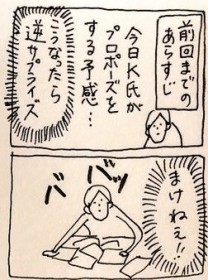 前回までの
あらすじ
今日K氏が
プロポーズを
する予感…
こうなったら
逆サプライズ
まけねえ!!
バッ
バッ